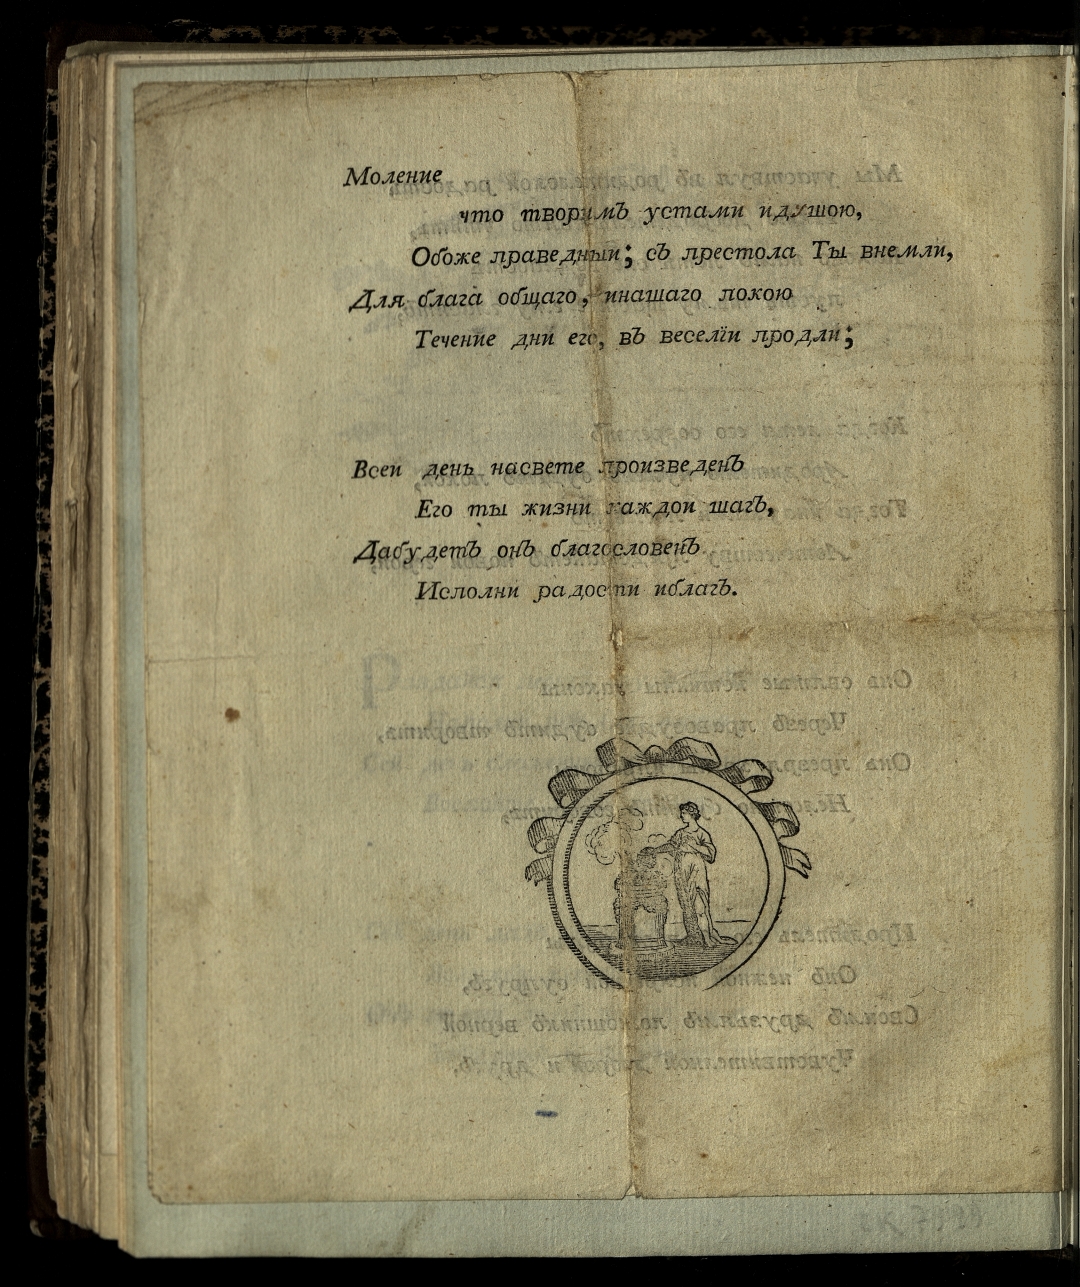 Моление
что творимЪ устами идушою,
Обоже праведныи; сЪ престола Ты внемли,
Для блага общаго, инашаго покою
Течение дни его, вЪ веселїи продли;
Всеи день насвете произведенЪ
Его ты жизни каждои шагЪ,
ДабудетЪ онЪ благословенЪ
Исполни радости иблагЪ.